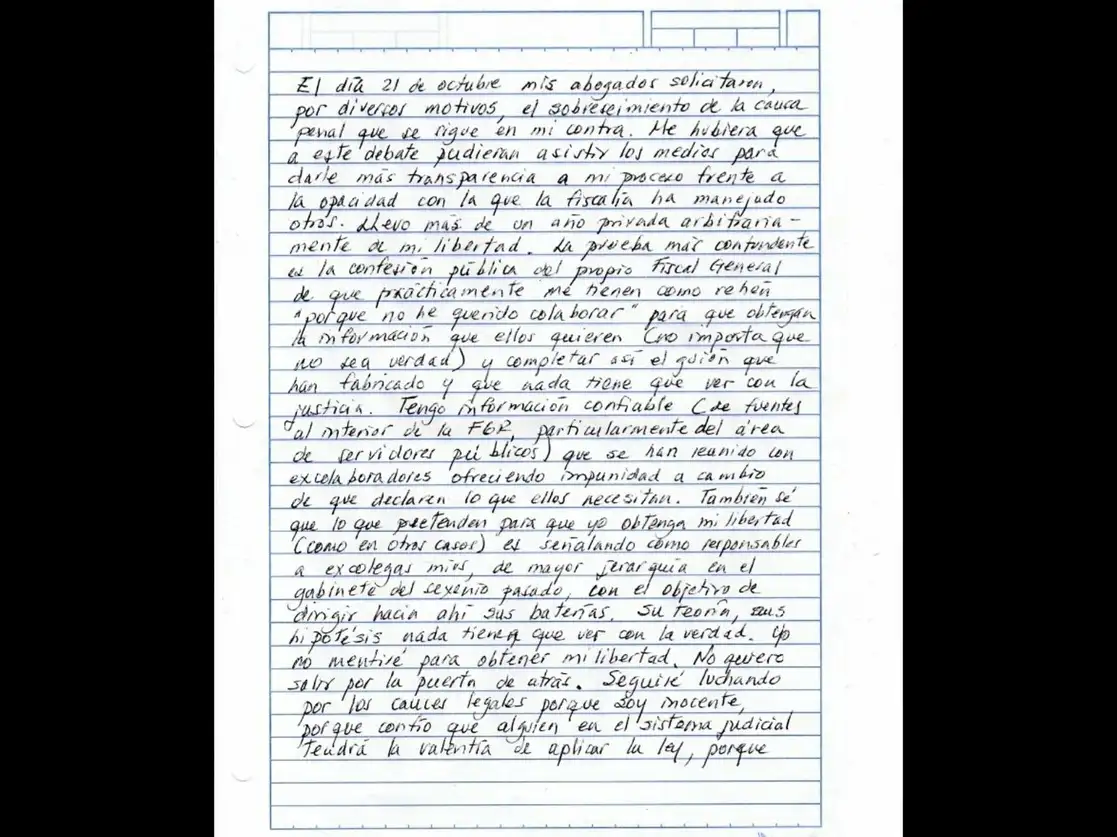 El día 21 de octubre mis abogados solicitaron,
por diversos motivos, el sobreseimiento de la causa
penal que se sigue en mi contra. Me hubiera que
a este debate pudieran asistir los medios para
darle más transparencia a mi proceso frente a
la opacidad con la que la fiscalía ha manejado
otros. Llevo más de un año privada arbitraria-
mente de mi libertad. La prueba más contundente
es la confesión pública del propio Fiscal General
de que prácticamente me tienen como rehén
"porque no he querido colaborar" para que obtengan
la información que ellos quieren (no importa que
no sea verdad) y completar así el guión que
han fabricado y que nada tiene que ver con la
justicia. Tengo información confiable (de fuentes
al interior de la FGR, particularmente del área
de servidores públicos) que se han reunido con
excolaboradores ofreciendo impunidad a cambio
de que declaren lo que ellos necesitan. También sé
que lo que pretenden para que yo obtenga mi libertad
(como en otros casos) es señalando como responsables
a excolegas míos, de mayor jerarquía en el
gabinete del sexenio pasado, con el objetivo de
dirigir hacia ahí sus baterías. Su teoría, sus
hipótesis nada tienen que ver con la verdad. Yo
no mentiré para obtener mi libertad. No quiero
salir por la puerta de atrás. Seguiré luchando
por los cauces legales porque soy inocente,
porque confío que alguien en el sistema judicial
tendrá la valentía de aplicar la ley, porque